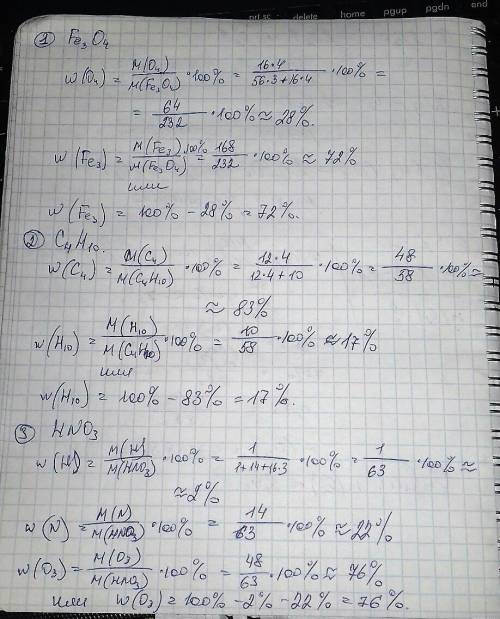 prt sc home pgup pgdn end
① Fe₃O₄
w(O₄) = M(O₄)/M(Fe₃O₄) · 100% = 16·4/56·3+16·4 · 100% =
= 64/232 · 100% ≈ 28%.
w(Fe₃) = M(Fe₃)·100%/M(Fe₃O₄) = 168/232 · 100% ≈ 72%
или
w(Fe₃) = 100% - 28% = 72%.
② C₄H₁₀.
w(C₄) = M(C₄)/M(C₄H₁₀) · 100% = 12·4/12·4+10 · 100% = 48/58 · 100% ≈
≈ 83%
w(H₁₀) = M(H₁₀)/M(C₄H₁₀) · 100% = 10/58 · 100% ≈ 17%
или
w(H₁₀) = 100% - 83% = 17%.
③ HNO₃
w(H) = M(H)/M(HNO₃) · 100% = 1/1+14+16·3 · 100% = 1/63 · 100% ≈
≈ 2%
w(N) = M(N)/M(HNO₃) · 100% = 14/63 · 100% ≈ 22%
w(O₃) = M(O₃)/M(HNO₃) · 100% = 48/63 · 100% ≈ 76%
или w(O₃) = 100% - 2% - 22% = 76%.